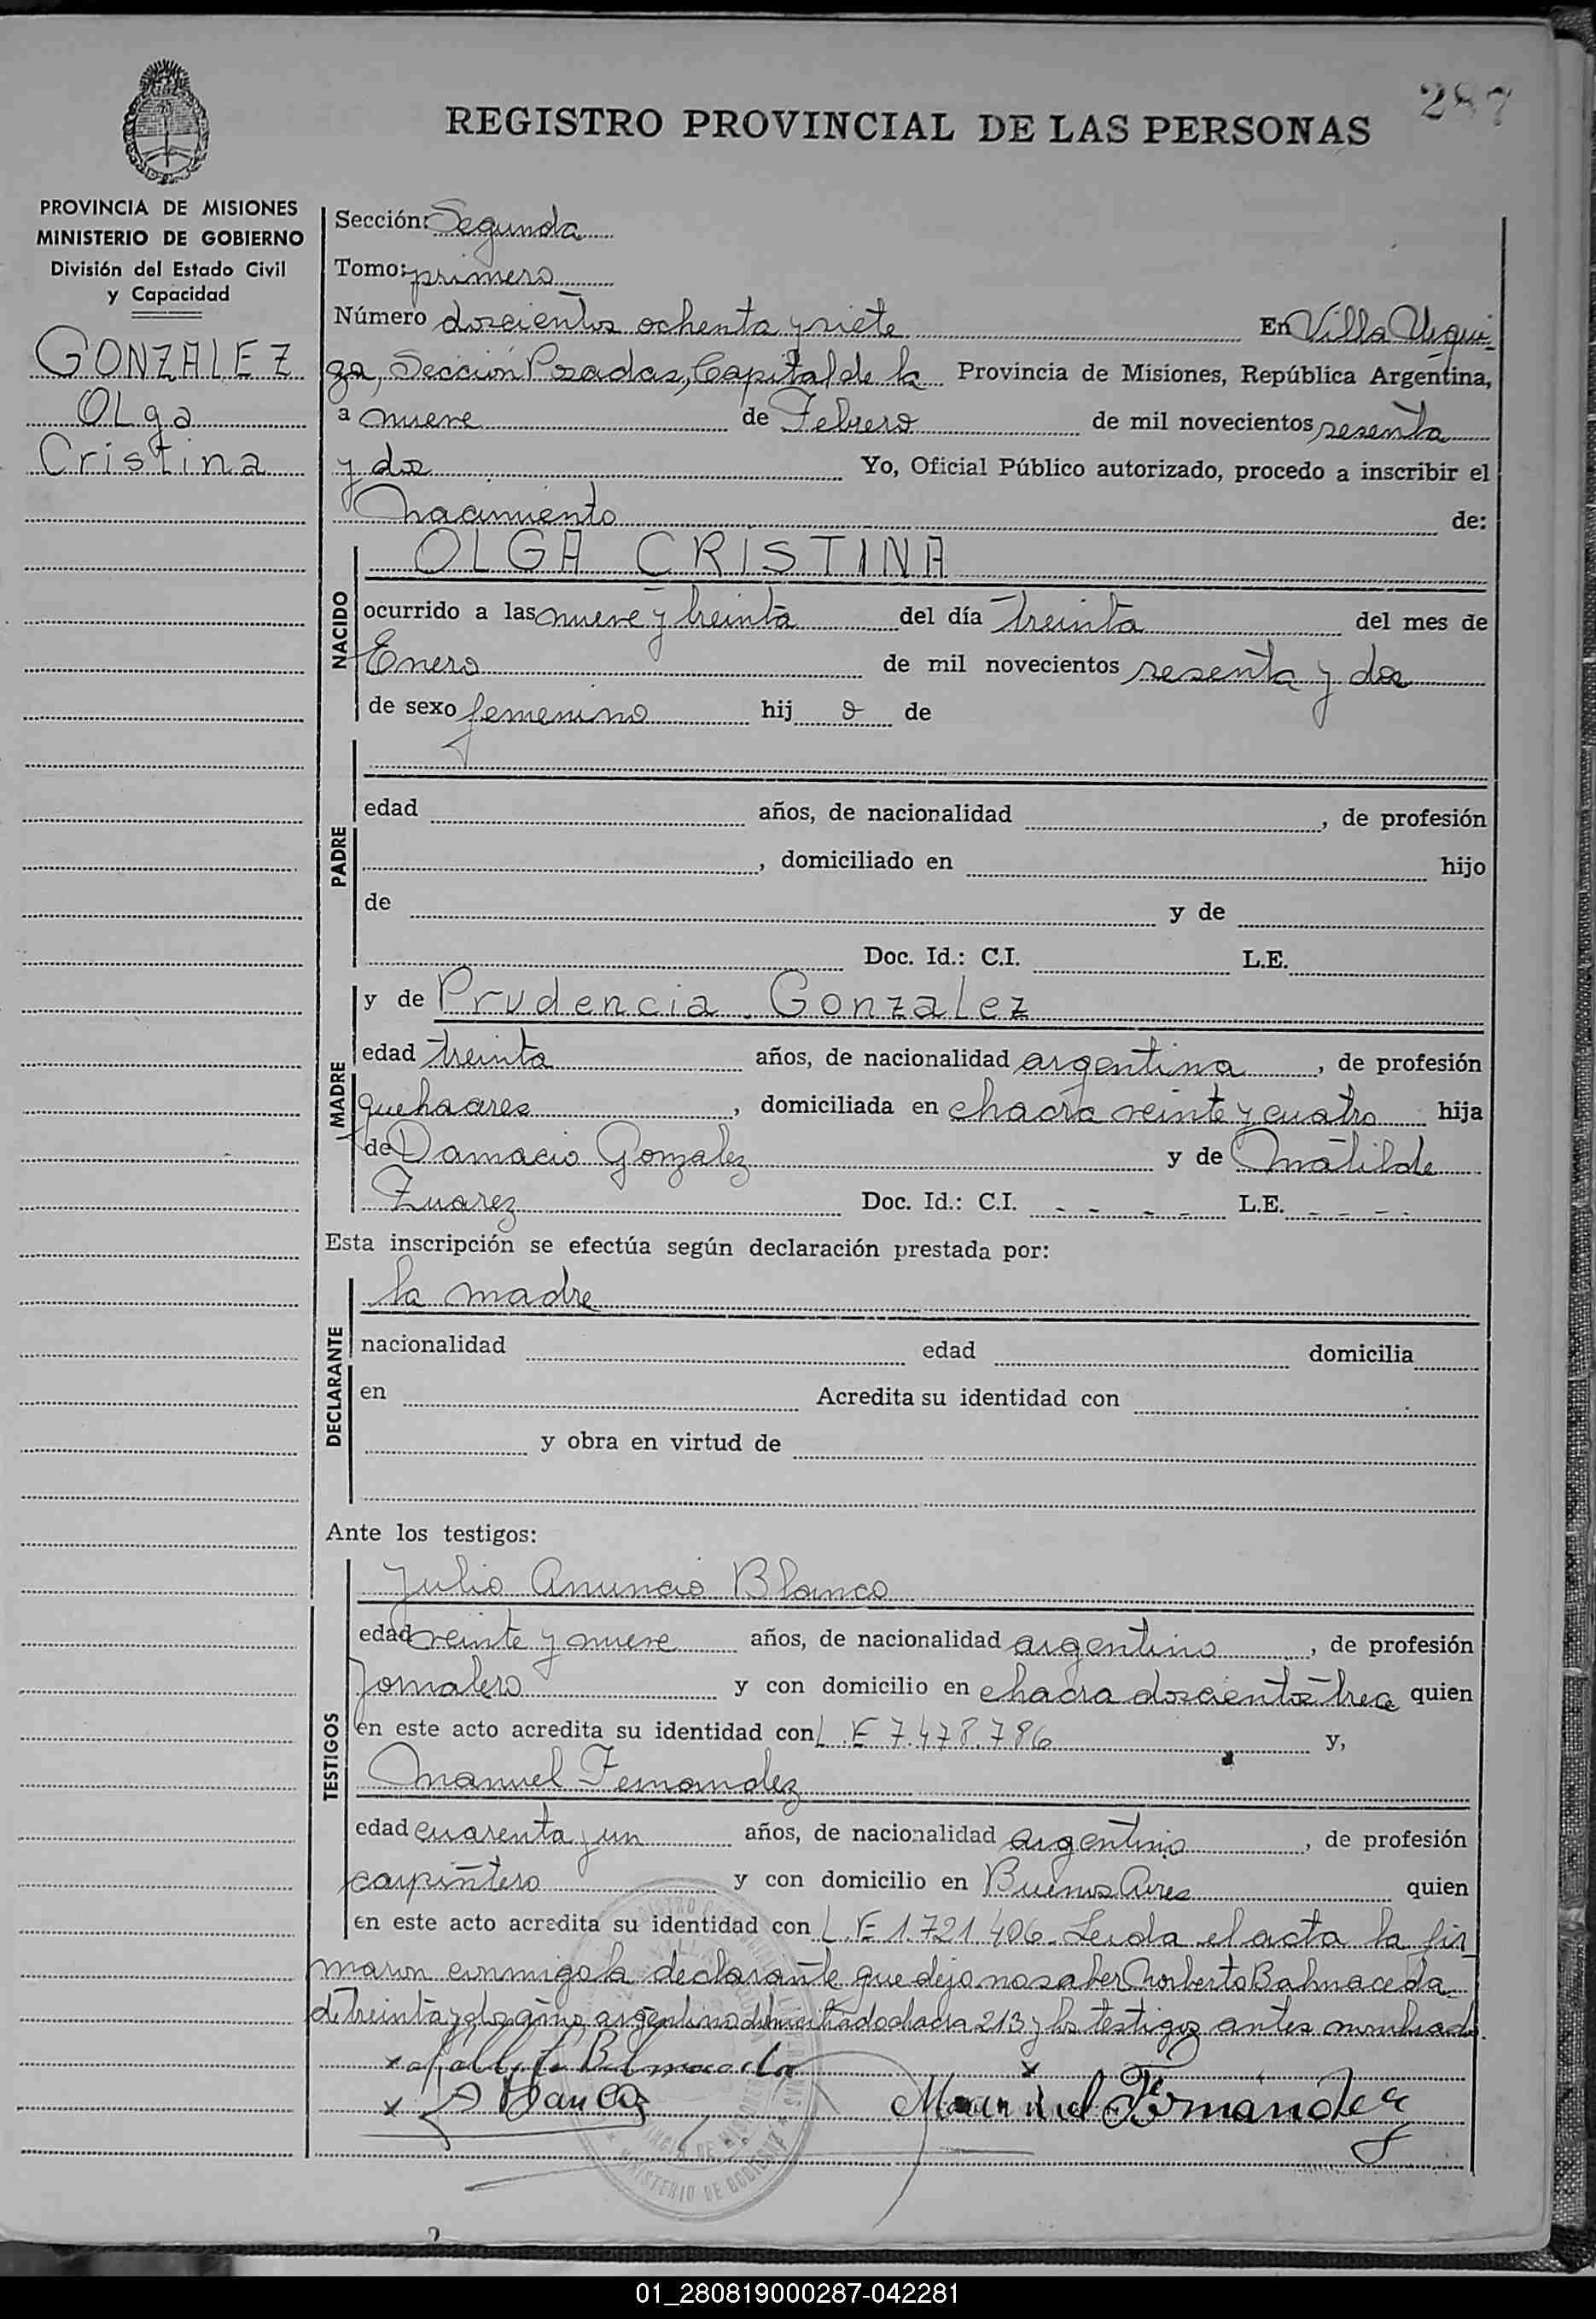 287
REGISTRO PROVINCIAL DE LAS PERSONAS
PROVINCIA DE MISIONES
MINISTERIO DE GOBIERNO
División del Estado Civil
y Capacidad
GONZALEZ
OLga
Cristina
Sección: Segunda
Tomo: primero
Número doscientos ochenta y siete En Villa Urqui-
za, Sección Posadas, Capital de la Provincia de Misiones, República Argentina,
a nueve de Febrero de mil novecientos sesenta
y dos Yo, Oficial Público autorizado, procedo a inscribir el
Nacimiento de:
NACIDO
OLGA CRISTINA
ocurrido a las nueve y treinta del día treinta del mes de
Enero de mil novecientos sesenta y dos
de sexo femenino hij a de
PADRE
edad años, de nacionalidad , de profesión
, domiciliado en hijo
de y de
Doc. Id.: C.I. L.E.
MADRE
y de Prudencia Gonzalez
edad treinta años, de nacionalidad argentina, de profesión
quehaceres, domiciliada en chacra veinte y cuatro hija
de Damacio Gonzalez y de Matilde
Zuarez Doc. Id.: C.I. - - - - L.E. - - - -
Esta inscripción se efectúa según declaración prestada por:
DECLARANTE
la madre
nacionalidad edad domicilia
en Acredita su identidad con
y obra en virtud de
Ante los testigos:
TESTIGOS
Julio Anuncio Blanco
edad veinte y nueve años, de nacionalidad argentino, de profesión
Jornalero y con domicilio en chacra doscientos trece quien
en este acto acredita su identidad con L.E 7.478.786 y,
Manuel Fernandez
edad cuarenta y un años, de nacionalidad argentino, de profesión
carpintero y con domicilio en Buenos Aires quien
en este acto acredita su identidad con L.E 1.721.406. Leida el acta la fir-
maron conmigo la declarante que dejo no saber Norberto Balmaceda
de treinta y dos años argentino domiciliado chacra 213 y los testigos antes nombrados.
x Balmaceda
x Blanco
x Manuel Fernández
MINISTERIO DE GOBIERNO
01_280819000287-042281